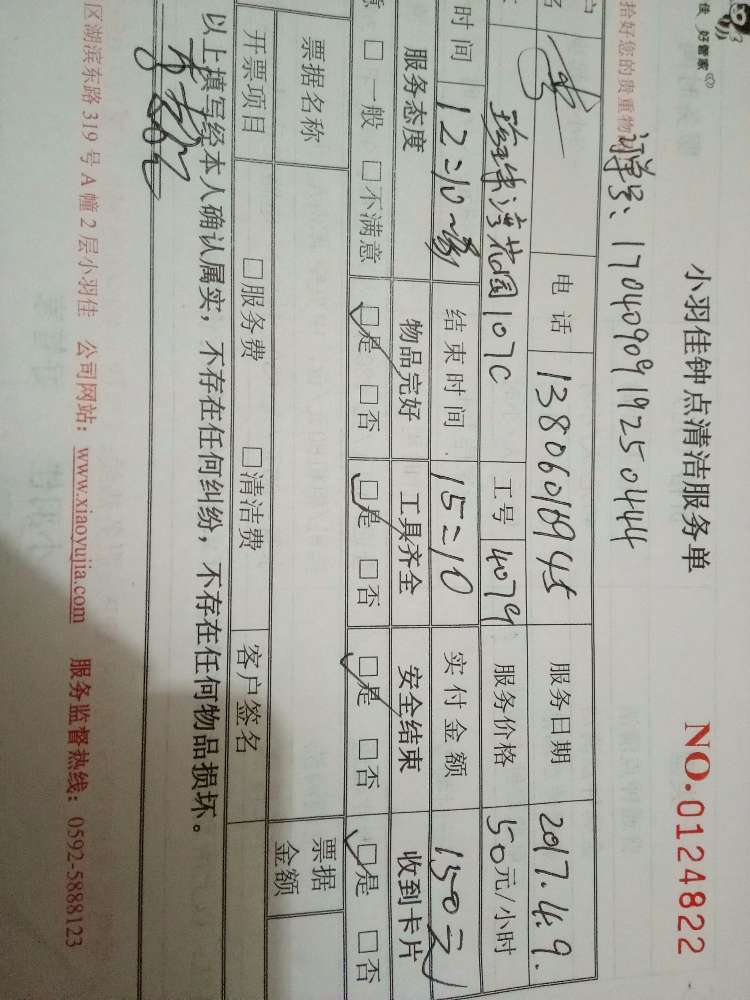 佳 好管家
小羽佳钟点清洁服务单 NO.0124822
拾好您的贵重物 订单号：1704090919250444
电话 13806018945 服务日期 2017.4.9.
珍珠湾花园107C 工号 4079 服务价格 50元/小时
时间 12:10 结束时间 15:10 实付金额 150元
服务态度 物品完好 工具齐全 安全结束 收到卡片
意 □一般 □不满意 □是 □否 □是 □否 □是 □否 □是 □否
票据名称 票据金额
开票项目 □服务费 □清洁费 客户签名
以上填写经本人确认属实，不存在任何纠纷，不存在任何物品损坏。
区湖滨东路319号A幢2层小羽佳 公司网站：www.xiaoyujia.com 服务监督热线：0592-5888123